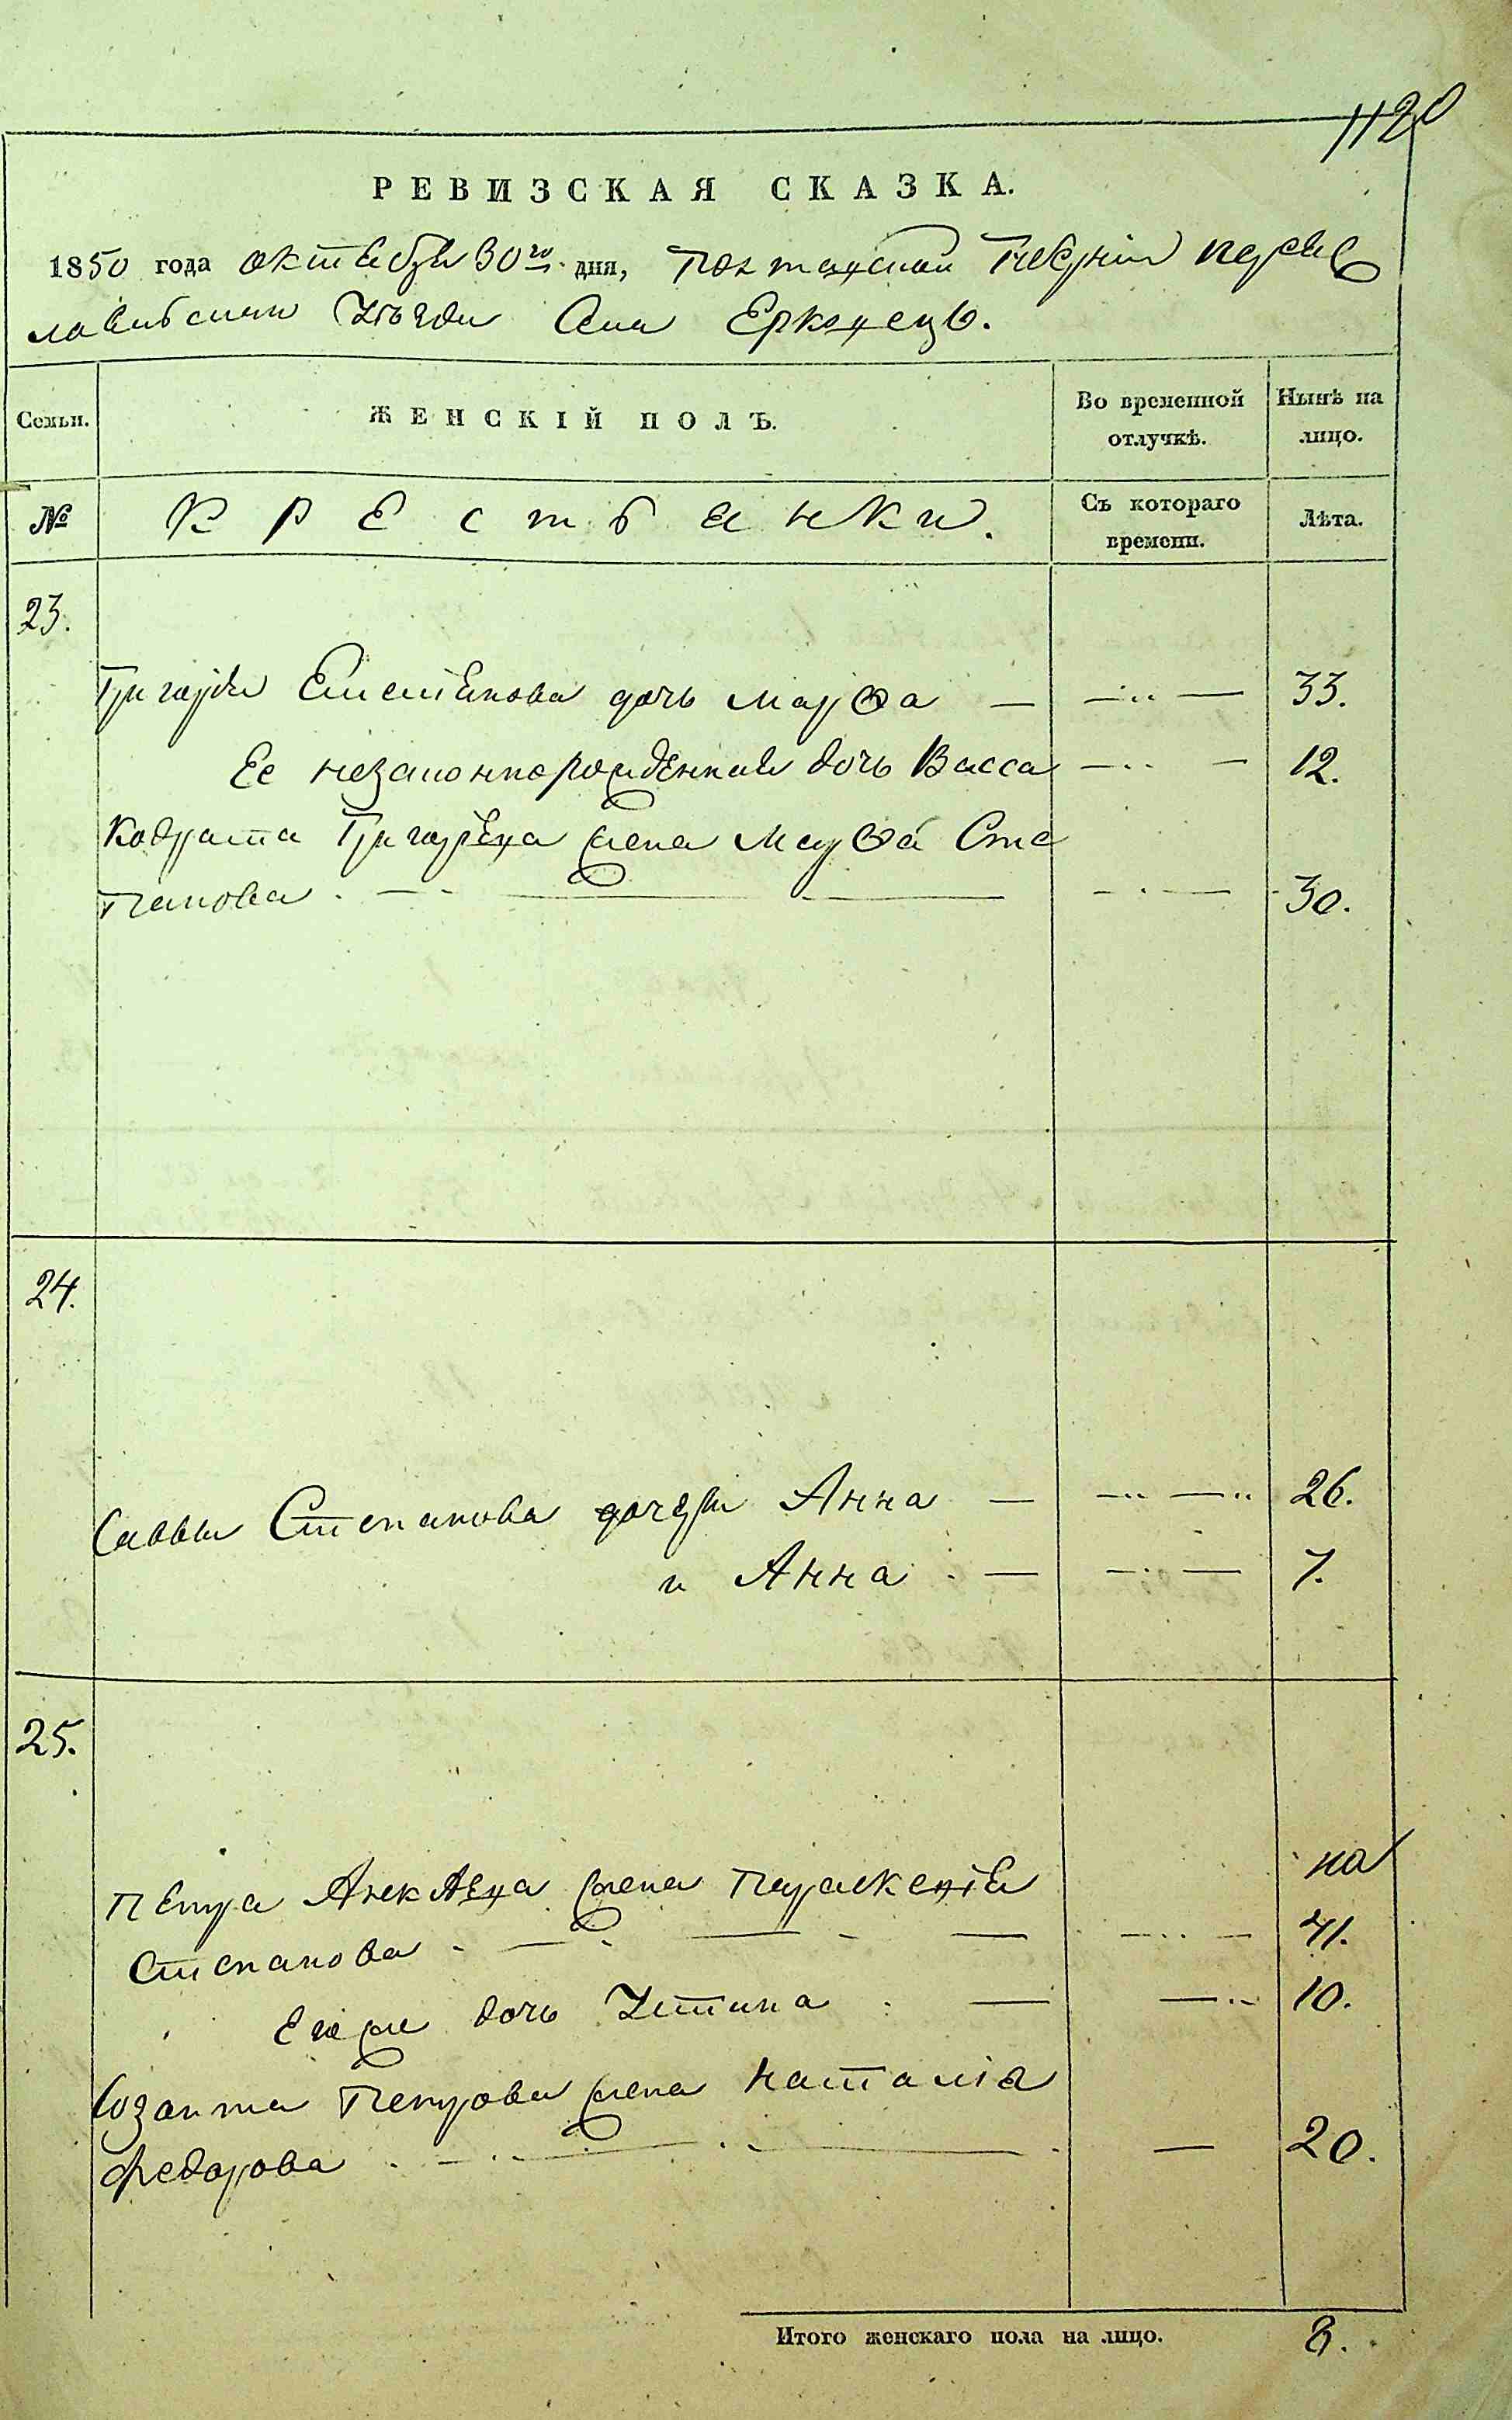 1120
РЕВИЗСКАЯ СКАЗКА.
1850 года октября 30го дня, Полтавской Губерніи Переяс
лавльскаго Уѣзда Села Ерковецъ.
Семьи. ЖЕНСКІЙ ПОЛЪ. Во временной отлучкѣ. Нынѣ на лицо.
№ Крестьянки. Съ котораго времени. Лѣта.
23.
Григорья дочь Марѳа — 33.
Ее незаконнорожденная дочь Васса 12.
Кодрата Григорьева жена Марѳа Сте
панова 30.
24.
Саввы Степанова дочери Анна — 26.
и Анна — 7.
25.
Петра жена Параскевія на
Степанова 41.
Его же дочь Устина — 10.
Созонта Петрова жена Наталія
Федорова — 20.
Итого женскаго пола на лицо. 8.